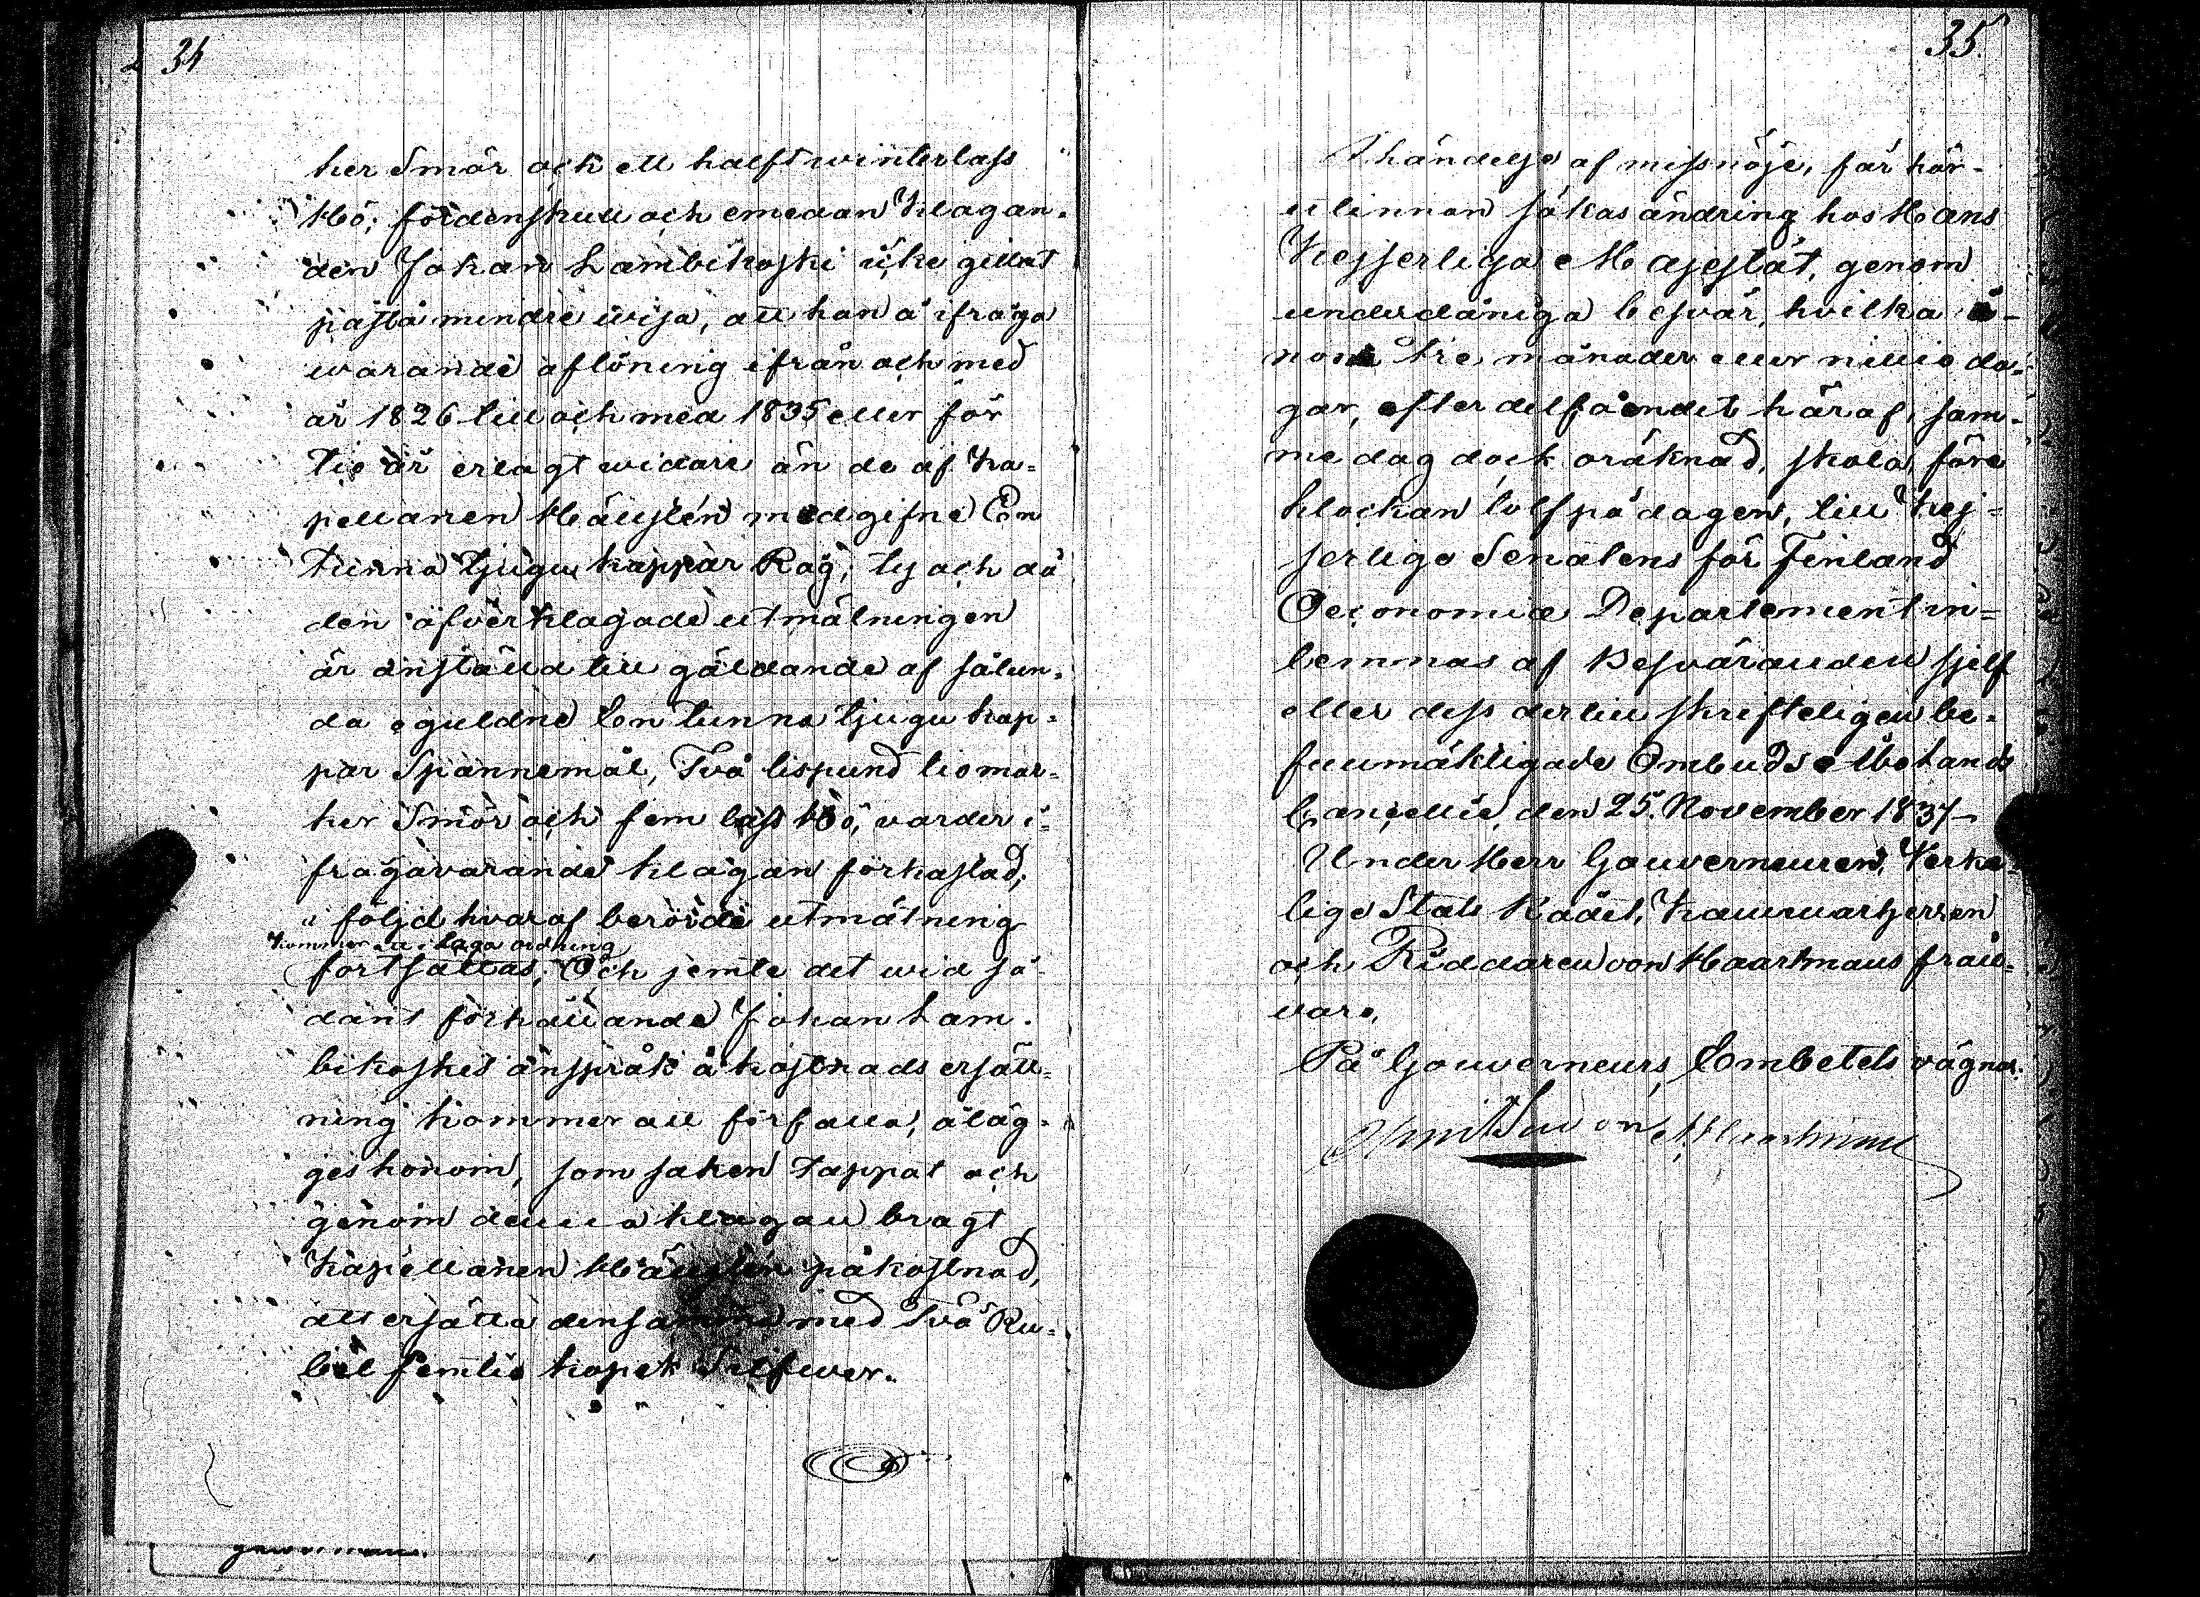 34
ker Smör och ett halft winterlass
Hö; fördenskull och emedan Klagan-
den Johan Lambikoski icke gittat
påstå mindre wisa, att han å ifråga
warande aflöning ifrån och med
år 1826 till och med 1835 eller för
Tio år erlagt widare än de af Ka-
pellanen Hällstén medgifne En
tunna tjugu kappar Råg; ty och då
den öfverklagade utmätningen
är anstäld till gäldande af sålun-
da oguldne En tunna tjugu kap-
par Spannemål, Två lispund tio mar-
ker Smör och fem lass Hö, varder i-
frågavarande klagan förkastad;
i följd hvaraf berörde utmätning
kommer att i laga ordning
fortsättas; Och jemte det wid så-
dant förhållande Johan Lam-
bikoskis anspråk å kostnads ersätt-
ning kommer att förfalla, åläg-
ges honom, som saken Tappat och
genom denna klagan bragt
Kapellanen Hällstén på kostnad,
att ersätta densamma med Två Ru-
bel femtio kopek Silfwer.
35.
I händelse af missnöje, får här-
utinnan sökas ändring hos Hans
Kejserliga Majestät, genom
underdåniga besvär, hvilka i-
nom tre månader eller nittio da-
gar, efter delfåendet häraf, sam-
me dag dock oräknad, skola, före
klockan tolf på dagen, till Kej-
serliga Senatens för Finland
Oeconomie Departement in-
lemnas af Besväranden sjelf
eller dess dertill skrifteligen be-
fullmäktigade Ombud. Åbo Lands
Cancellie, den 25. November 1837
Under Herr Gouverneuren, Verke-
lige Stats Rådet, Kammarherren
och Riddaren von Haartmans från-
varo,
På Gouverneurs Embetets vägnar.